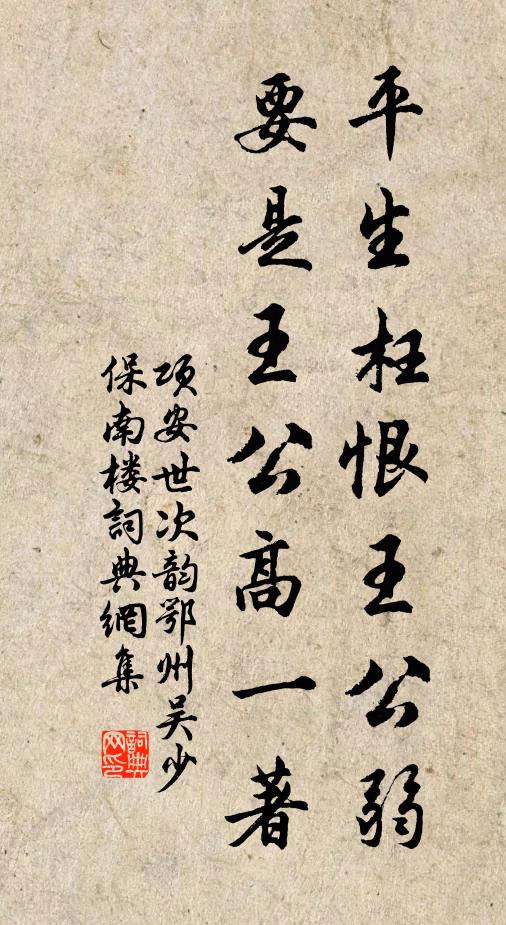 平生枉恨王公弱
要是王公高一著
项安世次韵鄂州吴少
保南楼詞典網集
詞典网印